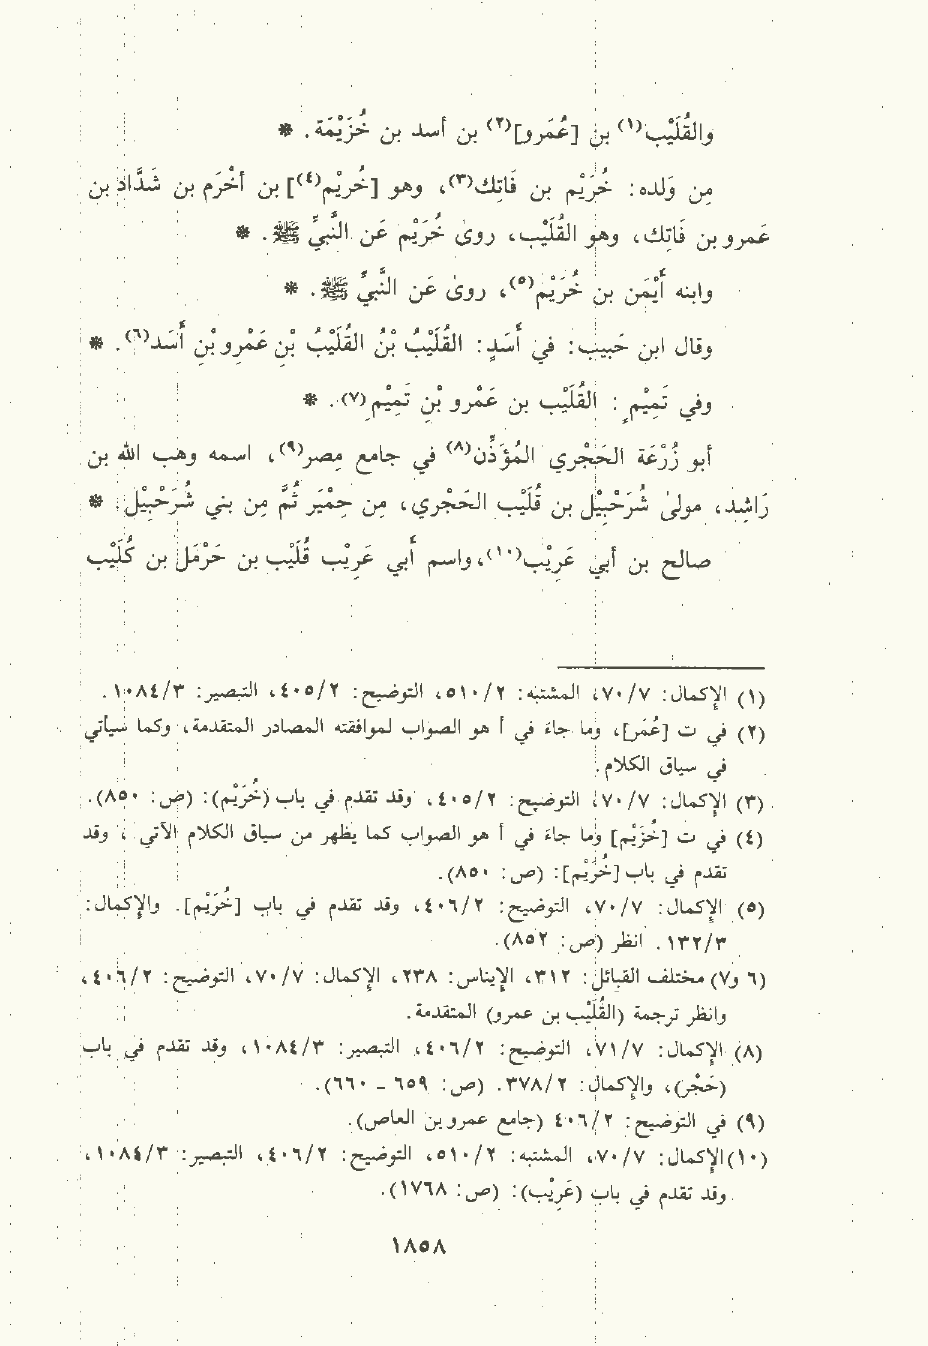 والقُلَيْب(١) بن [عُمَرو](٢) بن أسد بن خُزَيْمَة. *
مِن وَلده: خُرَيْم بن فَاتِك(٣)، وهو [خُريْم(٤)] بن أخْرَم بن شَدَّاد بن
عَمرو بن فَاتِك، وهو القُلَيْب، روىٰ خُرَيْم عَن النَّبيِّ ﷺ. *
وابنه أَيْمَن بن خُرَيْم(٥)، روىٰ عَن النَّبيِّ ﷺ. *
وقال ابن حَبيب: في أَسَدٍ: القُلَيْبُ بْنُ القُلَيْبُ بْنِ عَمْرِو بْنِ أَسَد(٦). *
وفي تَمِيْمٍ: القُلَيْب بن عَمْرو بْنِ تَمِيْمِ(٧). *
أبو زُرْعَة الحَجْري المُؤَذِّن(٨) في جامع مِصر(٩)، اسمه وهب الله بن
رَاشِد، مولىٰ شُرَحْبِيْل بن قُلَيْب الحَجْري، مِن حِمْيَر ثُمَّ مِن بني شُرَحْبِيْل: *
صالح بن أبي عَرِيْب(١٠)، واسم أَبي عَرِيْب قُلَيْب بن حَرْمَل بن كُلَيْب
(١) الإكمال: ٧٠/٧، المشتبه: ٥١٠/٢، التوضيح: ٤٠٥/٢، التبصير: ١٠٨٤/٣.
(٢) في ت [عُمَر]، وما جاءَ في أ هو الصواب لموافقته المصادر المتقدمة، وكما سيأتي
في سياق الكلام.
(٣) الإكمال: ٧٠/٧، التوضيح: ٤٠٥/٢، وقد تقدم في باب (خُرَيْم): (ص: ٨٥٠).
(٤) في ت [خُزَيْم] وما جاءَ في أ هو الصواب كما يظهر من سياق الكلام الآتي، وقد
تقدم في باب [خُرَيْم]: (ص: ٨٥٠).
(٥) الإكمال: ٧٠/٧، التوضيح: ٤٠٦/٢، وقد تقدم في باب [خُرَيْم]. والإكمال:
١٣٢/٣. انظر (ص: ٨٥٢).
(٦ و٧) مختلف القبائل: ٣١٢، الإيناس: ٢٣٨، الإكمال: ٧٠/٧، التوضيح: ٤٠٦/٢،
وانظر ترجمة (القُلَيْب بن عمرو) المتقدمة.
(٨) الإكمال: ٧١/٧، التوضيح: ٤٠٦/٢، التبصير: ١٠٨٤/٣، وقد تقدم في باب
(حَجْر)، والإكمال: ٣٧٨/٢. (ص: ٦٥٩ - ٦٦٠).
(٩) في التوضيح: ٤٠٦/٢ (جامع عمرو بن العاص).
(١٠) الإكمال: ٧٠/٧، المشتبه: ٥١٠/٢، التوضيح: ٤٠٦/٢، التبصير: ١٠٨٤/٣،
وقد تقدم في باب (عَرِيْب): (ص: ١٧٦٨).
١٨٥٨